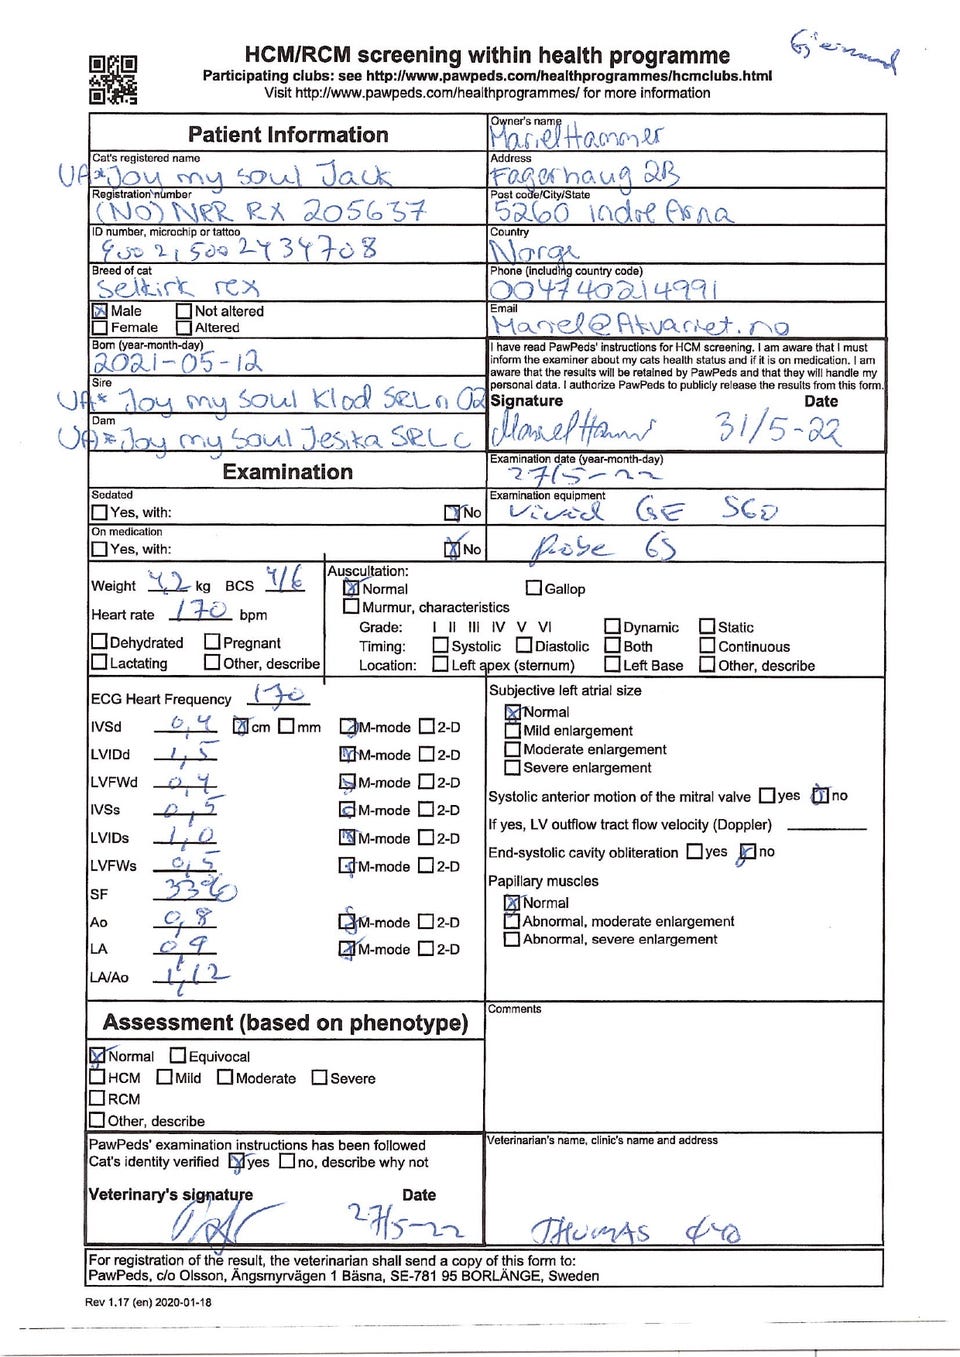 HCM/RCM screening within health programme
Participating clubs: see http://www.pawpeds.com/healthprogrammes/hcmclubs.html
Visit http://www.pawpeds.com/healthprogrammes/ for more information
Patient Information
Owner's name
Mariel Hammer
Cat's registered name
UA*Joy my soul Jack
Address
Fagerhaug 2B
Registration number
(NO) NRR RX 205637
Post code/City/State
5260 indre Arna
ID number, microchip or tattoo
900215002434708
Country
Norge
Breed of cat
Selkirk rex
Phone (including country code)
004740214991
Male Not altered
Female Altered
Email
Mariel@Akvariet.no
Born (year-month-day)
2021-05-12
I have read PawPeds' instructions for HCM screening. I am aware that I must
inform the examiner about my cats health status and if it is on medication. I am
aware that the results will be retained by PawPeds and that they will handle my
personal data. I authorize PawPeds to publicly release the results from this form.
Sire
UA* Joy my Soul Klod SRL n 02
Signature Date
Mariel Hammer 31/5-22
Dam
UA*Joy my Soul Jesika SRL c
Examination
Examination date (year-month-day)
27/5-22
Sedated
Yes, with: No
Examination equipment
Vivid GE S60
On medication
Yes, with: No
Probe 6S
Weight 4,2 kg BCS 4/6
Heart rate 170 bpm
Dehydrated Pregnant
Lactating Other, describe
Auscultation:
Normal Gallop
Murmur, characteristics
Grade: I II III IV V VI Dynamic Static
Timing: Systolic Diastolic Both Continuous
Location: Left apex (sternum) Left Base Other, describe
ECG Heart Frequency 170
IVSd 0,4 cm mm M-mode 2-D
LVIDd 1,5 M-mode 2-D
LVFWd 0,4 M-mode 2-D
IVSs 0,5 M-mode 2-D
LVIDs 1,0 M-mode 2-D
LVFWs 0,5 M-mode 2-D
SF 33%
Ao 0,8 M-mode 2-D
LA 0,9 M-mode 2-D
LA/Ao 1,12
Subjective left atrial size
Normal
Mild enlargement
Moderate enlargement
Severe enlargement
Systolic anterior motion of the mitral valve yes no
If yes, LV outflow tract flow velocity (Doppler)
End-systolic cavity obliteration yes no
Papillary muscles
Normal
Abnormal, moderate enlargement
Abnormal, severe enlargement
Assessment (based on phenotype)
Normal Equivocal
HCM Mild Moderate Severe
RCM
Other, describe
Comments
PawPeds' examination instructions has been followed
Cat's identity verified yes no, describe why not
Veterinary's signature Date
27/5-22
Veterinarian's name, clinic's name and address
THOMAS
For registration of the result, the veterinarian shall send a copy of this form to:
PawPeds, c/o Olsson, Ängsmyrvägen 1 Bäsna, SE-781 95 BORLÄNGE, Sweden
Rev 1.17 (en) 2020-01-18